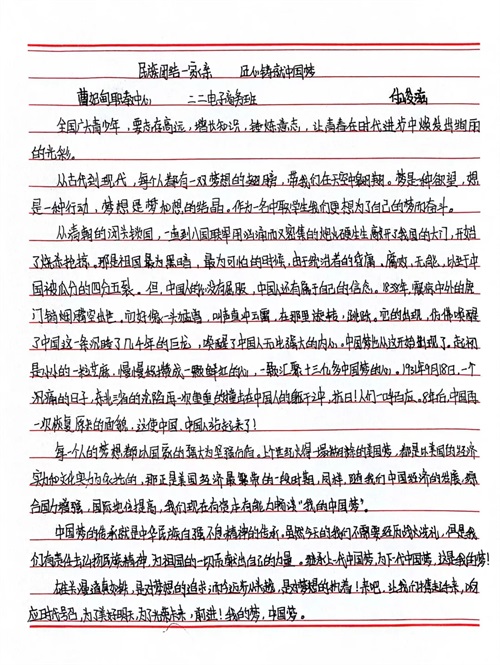 民族团结一家亲 匠心铸就中国梦
曹妃甸职教中心 二二电子商务班
全国广大青少年，要志存高远，增长知识，锤炼意志，让青春在时代进步中焕发出绚丽
的光彩。
从古代到现代，每个人都有一双梦想的翅膀，带我们在天空中翱翔。梦是一种欲望，想
是一种行动，梦想是梦和想的结晶。作为一名中职学生我们更想为了自己的梦而奋斗。
从清朝的闭关锁国，一直到八国联军用汹涌而又密集的炮火硬生生敲开了我国的大门，开始
了烧杀抢掠。那是祖国最为黑暗，最为可怕的时候，由于统治者的昏庸、腐朽、无能，以至于中
国被瓜分的四分五裂。但，中国人们没有屈服，中国还有属于自己的信念。1838年，
门销烟腾空出世。它好像一头雄鹰，叫声直冲云霄，在那里旋转，跳跃。它的出现，仿佛唤醒
了中国这一条沉睡了几十年的巨龙，唤醒了中国人无比强大的内心。中国梦也从这开始出现了。起初
是小小的一粒芝麻，慢慢极拼凑成一颗鲜红的心，一颗汇聚十三亿多中国梦的心。1931年9月18日，一个
沉痛的日子，东北三省的沦陷再一次重重的撞击在中国人的躯干之中，抗日！人们一呼百应。8年后，中国再
一次恢复原来的面貌，这使中国，中国人站起来了！
每一个人的梦想都以国家的强大为坚强后盾。上个世纪火得一塌糊涂的美国梦，都是以美国的经济
实力和文化实力为依托的，那正是美国经济最繁荣的一段时期，同样，随我们中国经济的发展，综
合国力增强，国际地位提高，我们现在有资本有能力畅谈“我的中国梦”。
中国梦的传承就是中华民族自强不息精神的传承。虽然今天的我们不需要经历战火洗礼，但是我
们有责任去弘扬民族精神，为祖国的一切贡献出自己的力量。继承上一代中国梦，为下一代中国梦，这是我的梦！
雄关漫道真如铁，是对梦想的追求；而今迈步从头越，是对梦想的执着！来吧，让我们携起手来，响
应时代号召，为了美好明天，为了光荣未来，前进！我的梦，中国梦。